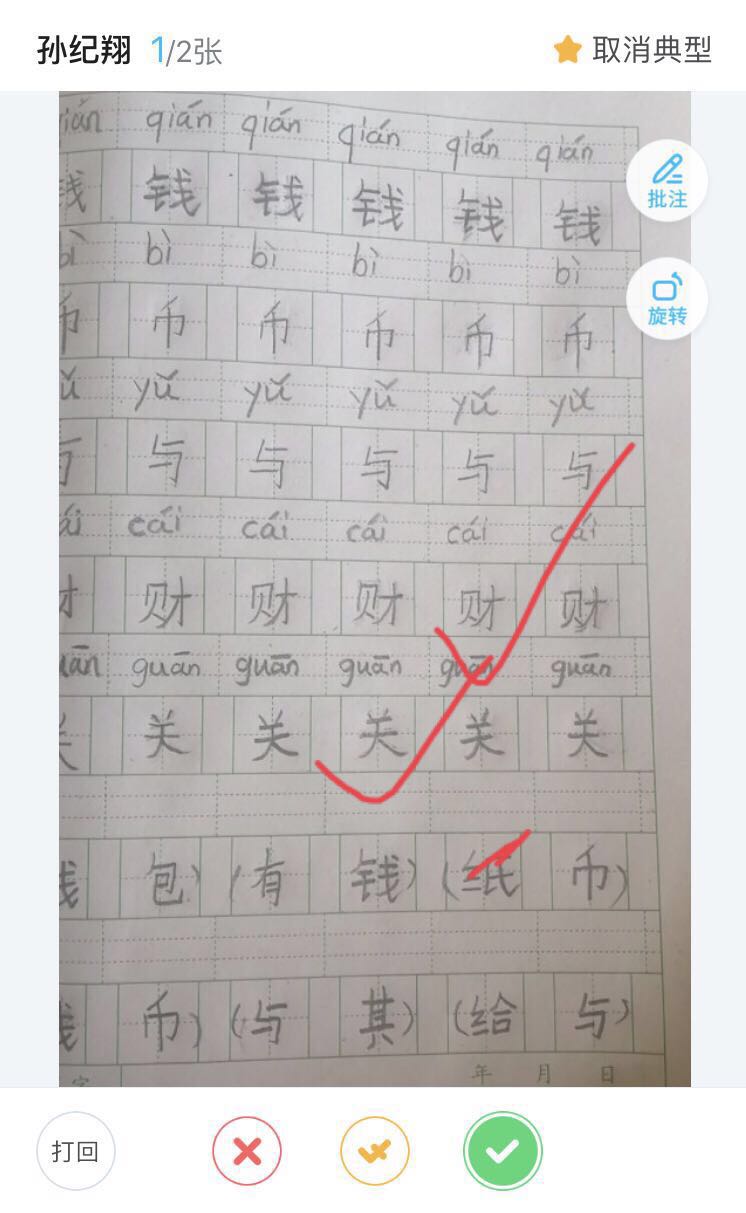 孙纪翔 1/2张 取消典型
qián qián qián qián qián
钱 钱 钱 钱 钱 钱
批注
bì bì bì bì bì bì
旋转
币 币 币 币 币 币
yǔ yǔ yǔ yǔ yǔ
与 与 与 与 与 与
cái cái cái cái cái
财 财 财 财 财
guān guān guān guān guān
关 关 关 关 关
钱 包) (有 钱) (纸 币)
钱 币) (与 其) (给 与)
字 年 月 日
打回